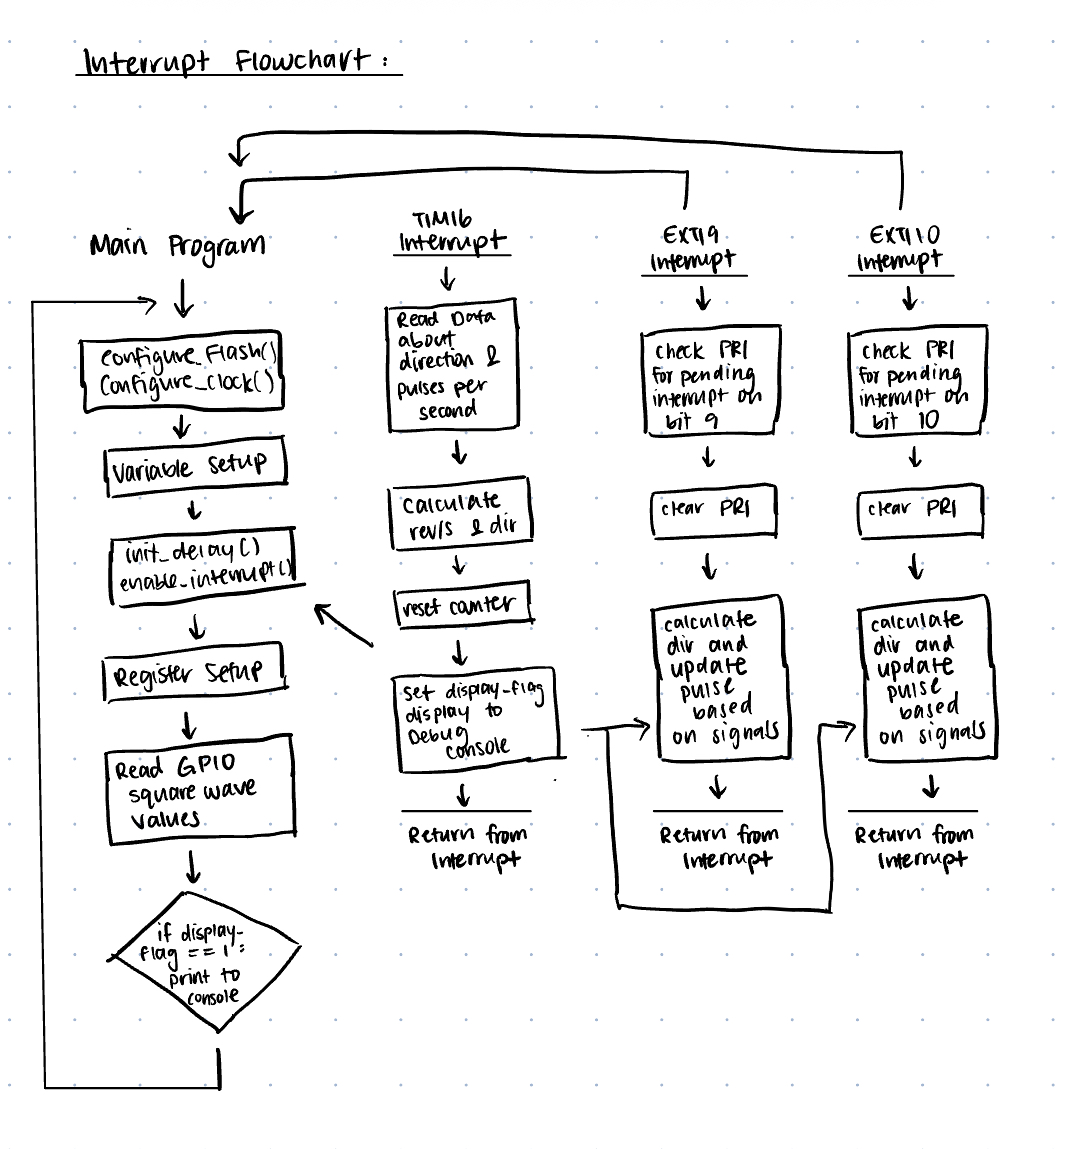 Interrupt Flowchart :
Main Program
configure_Flash()
Configure_Clock()
Variable Setup
init_delay()
enable_interrupt()
Register Setup
Read GPIO
square wave
values
if display-
flag == 1 :
print to
console
TIM16
Interrupt
Read Data
about
direction &
pulses per
second
Calculate
rev/s & dir
reset counter
Set display_flag
display to
Debug
console
Return from
Interrupt
EXTI9
Interrupt
check PR1
for pending
interrupt on
bit 9
clear PR1
calculate
dir and
update
pulse
based
on signals
Return from
Interrupt
EXTI10
Interrupt
check PR1
for pending
interrupt on
bit 10
clear PR1
calculate
dir and
update
pulse
based
on signals
Return from
Interrupt